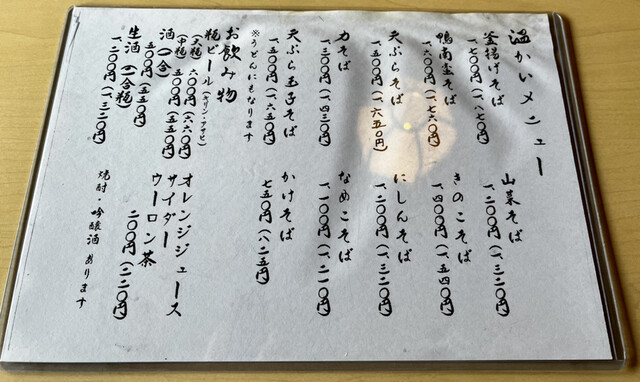 温かいメニュー
釜揚げそば
一、七〇〇円(一、八七〇円)
鴨南蛮そば
一、六〇〇円(一、七六〇円)
天ぷらそば
一、五〇〇円(一、六五〇円)
力そば
一、三〇〇円(一、四三〇円)
天ぷら玉子そば
一、五〇〇円(一、六五〇円)
※うどんにもなります
山菜そば
一、二〇〇円(一、三二〇円)
きのこそば
一、四〇〇円(一、五四〇円)
にしんそば
一、二〇〇円(一、三二〇円)
なめこそば
一、一〇〇円(一、二一〇円)
かけそば
七五〇円(八二五円)
お飲み物
瓶ビール(キリン・アサヒ)
(大瓶) 六〇〇円(六六〇円)
(中瓶) 五〇〇円(五五〇円)
酒(一合)
五〇〇円(五五〇円)
生酒(一合瓶)
一、二〇〇円(一、三二〇円)
オレンジジュース
サイダー
ウーロン茶
二〇〇円(二二〇円)
焼酎・吟醸酒 あります